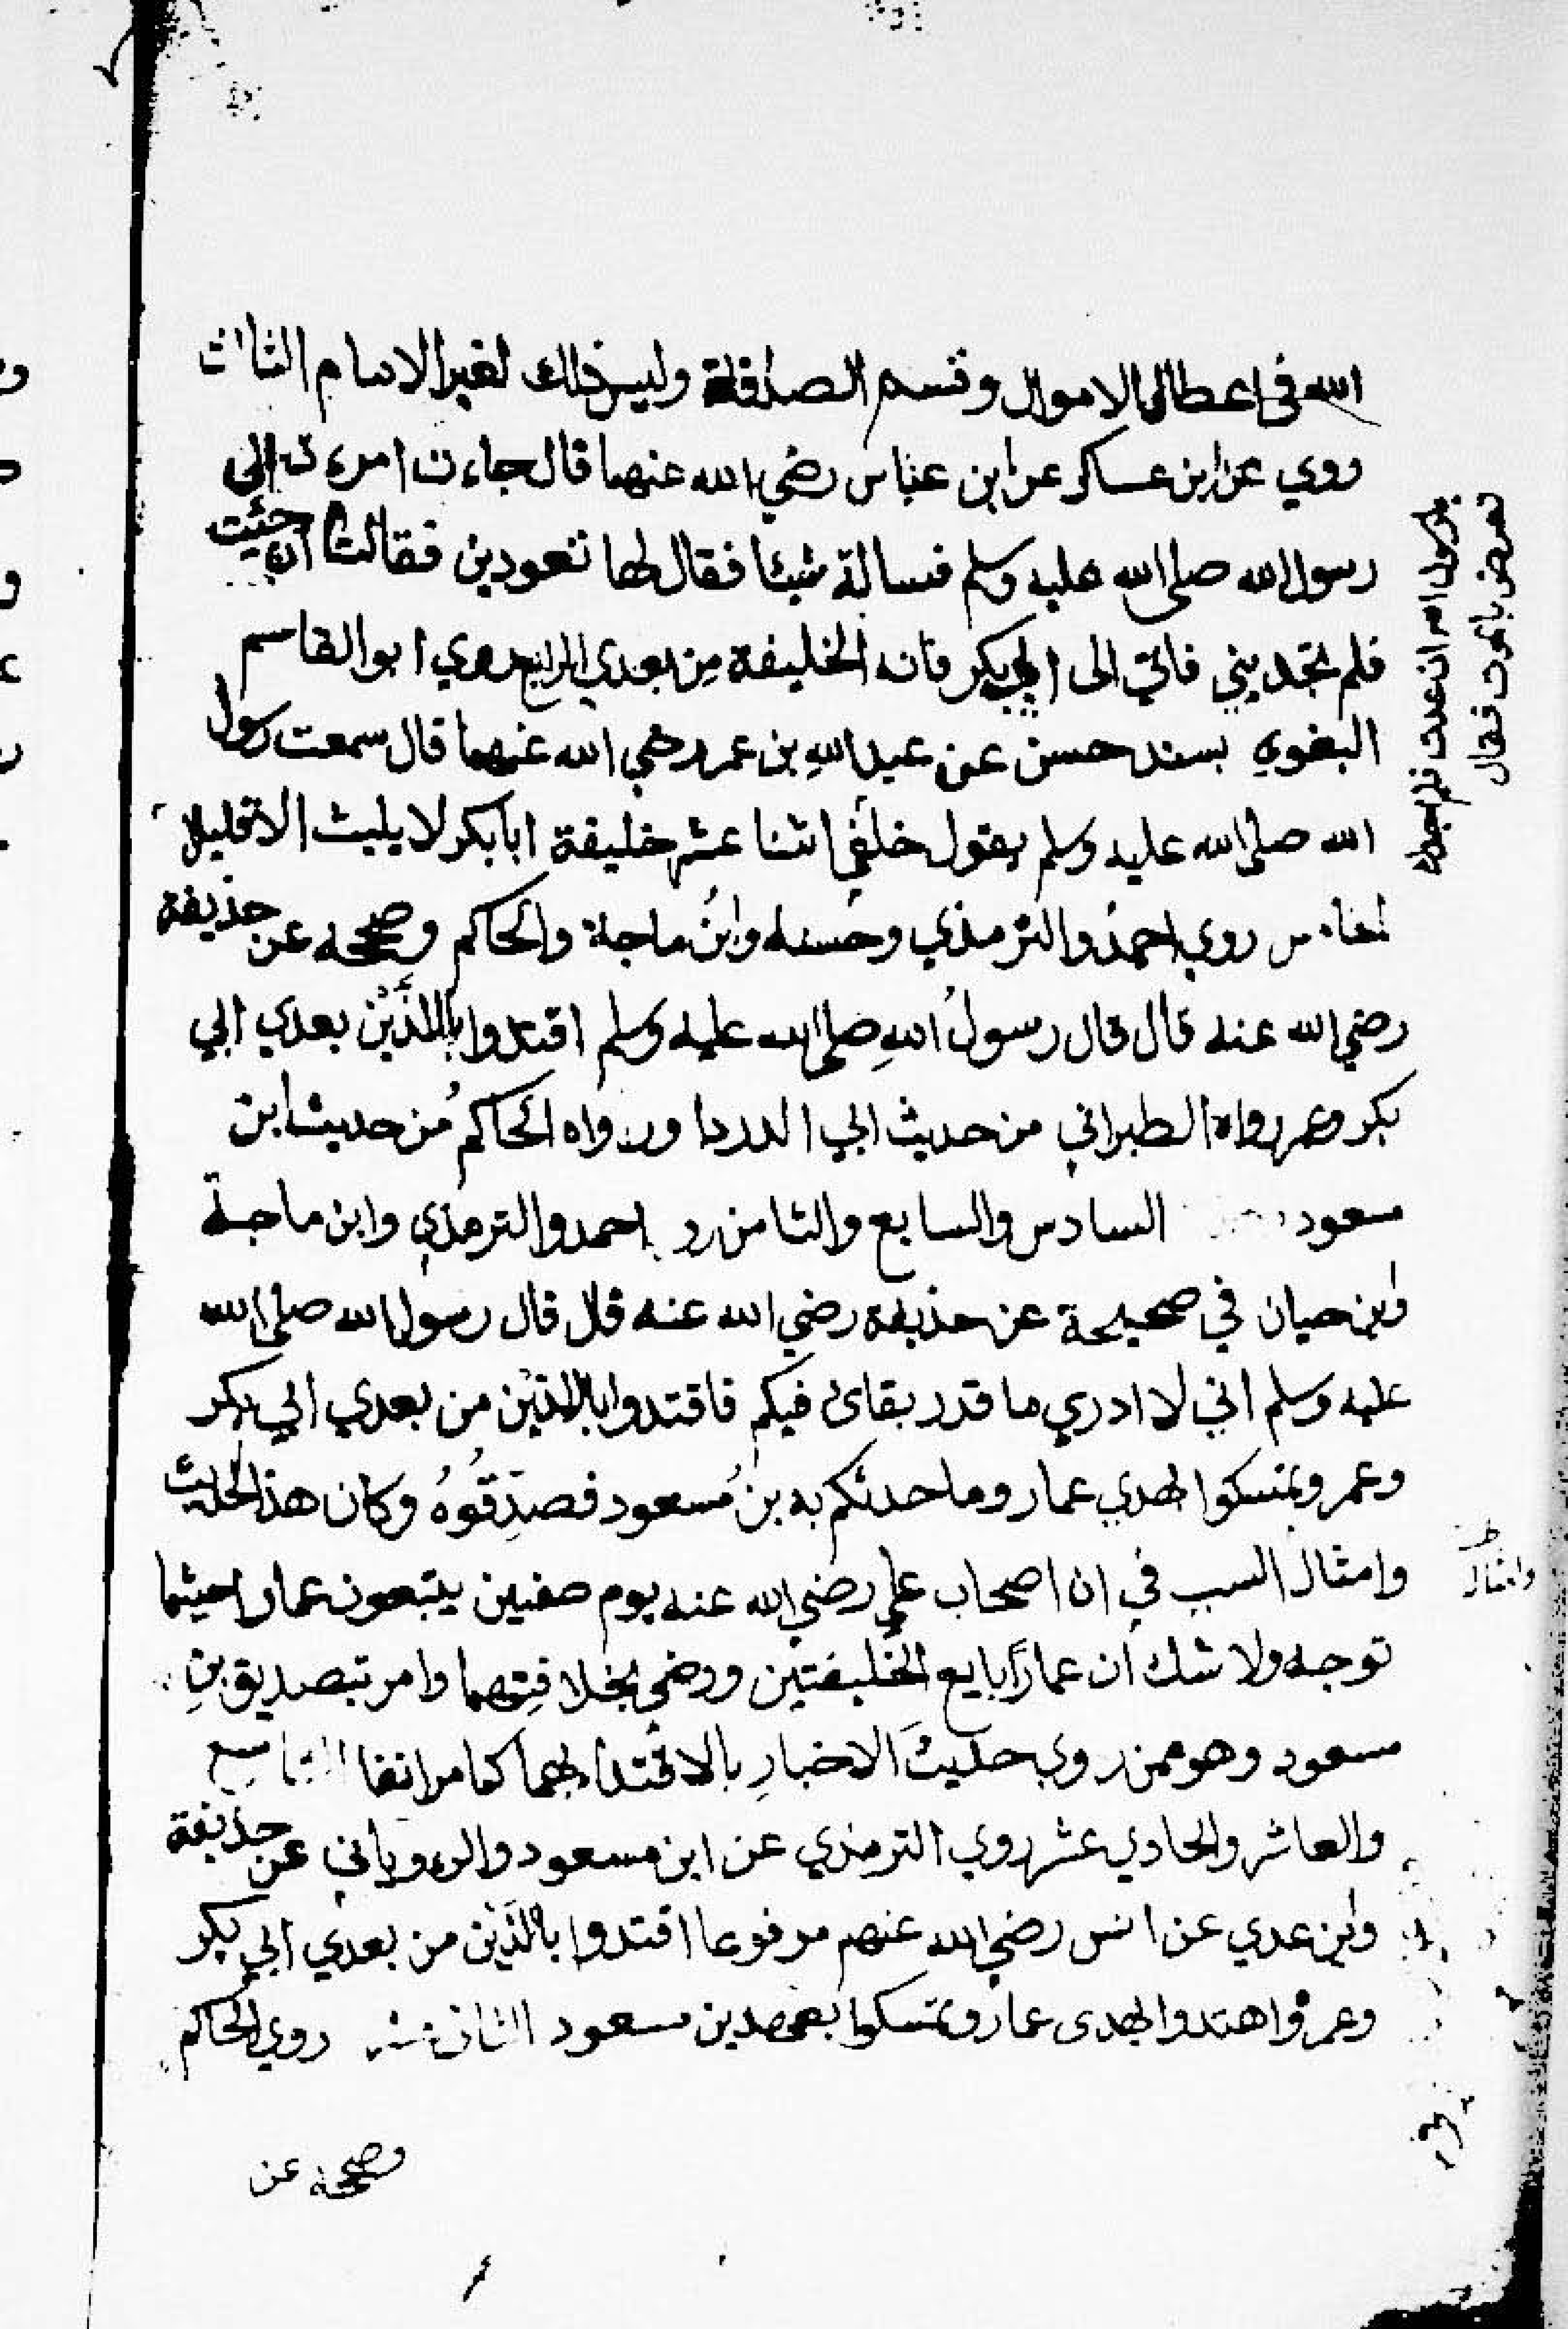 الله في اعطا الاموال وقسم الصدقة وليس ذلك لغير الامام الثالث
روي عن ابن عساكر عن ابن عباس رضي الله عنهما قال جاءت امرءة الى
رسول الله صلى الله عليه وسلم فسالة شيئا فقال لها تعودين فقالت ان جئت
فلم تجديني فاتي الى ابي بكر فانه الخليفة مِن بعدي الرابع روي ابو القاسم
البغوي بسند حسن عن عبد اللهِ بن عمر رضي الله عنهما قال سمعت رسول
الله صلى الله عليه وسلم يقول خلفي اثنا عشر خليفة ابا بكر لا يلبث الا قليلا
الخامس روي احمدُ والترمذي وحسنه وابنُ ماجة والحاكم وصححه عن حذيفة
رضي الله عنه قال قال رسولُ اللهِ صلى الله عليه وسلم اقتدوا باللذَيْن بعدي ابي
بكر وعمر رواه الطبراني من حديث ابي الدردا ورواه الحاكمُ من حديث ابن
مسعود السادس والسابع والثامن رو احمد والترمذي وابن ماجة
وابن حبان في صحيحة عن حذيفة رضي الله عنه قال قال رسول الله صلى الله
عليه وسلم اني لا ادري ما قدر بقائ فيكم فاقتدوا باللذيْن من بعدي ابي بكر
وعمر وتمسكوا بهدي عمار وما حدثكم به بنُ مُسعود فصدِقُوهُ وكان هذا لحديث
وامثال السبب في ان اصحاب علي رضي الله عنه يوم صفين يتبعون عمار احيثما
توجه ولا شك ان عمارًا بايع الخليفتين ورضي بخلافتِهما وامر بتصديق بنِ
مسعود وهو ممن روي حديثَ الاخبارِ بالاقتداء بهما كما مر انفا التاسع
والعاشر والحادي عشر روي الترمذي عن ابن مسعود والروياني عن حذيفة
وابن عدي عن انس رضي الله عنهم مرفوعا اقتدوا بالذَيْن من بعدي ابي بكر
وعمر واهتدوا بهدى عمار وتمسكوا بعهد بن مسعود الثاني عشر روي الحاكم
وصححه عن
يرسول الله ان عدت فلم اجدك
تعرض بالموت فقال
وامثاله